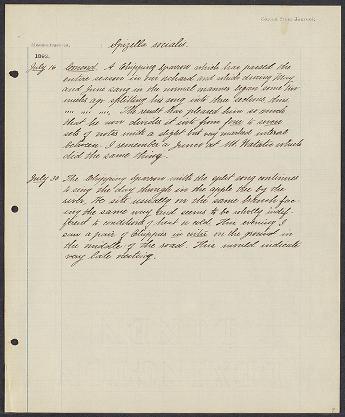 Copied from Journal.
Spizella socialis.
Massachusetts.
1892.
July 16 Concord. A Chipping Sparrow which has passed the
entire season in our orchard and which during May
and June sang in the normal manner began some two
weeks ago splitting his song into three sections thus,
The result has pleased him so much
that he now divides it into from four to seven
sets of notes with a slight but very marked interval
between. I remember a Junco at Mt. Watatic which
did the same thing.
July 30 The Chipping Sparrow with the split song continues
to sing the day through in the apple tree by the
side. He sits usually on the same branch fac-
ing the same way and seems to be wholly indif-
ferent to conditions of heat or cold. This evening I
saw a pair of Chippies in coitu on the ground in
the middle of the road. This would indicate
very late nesting.